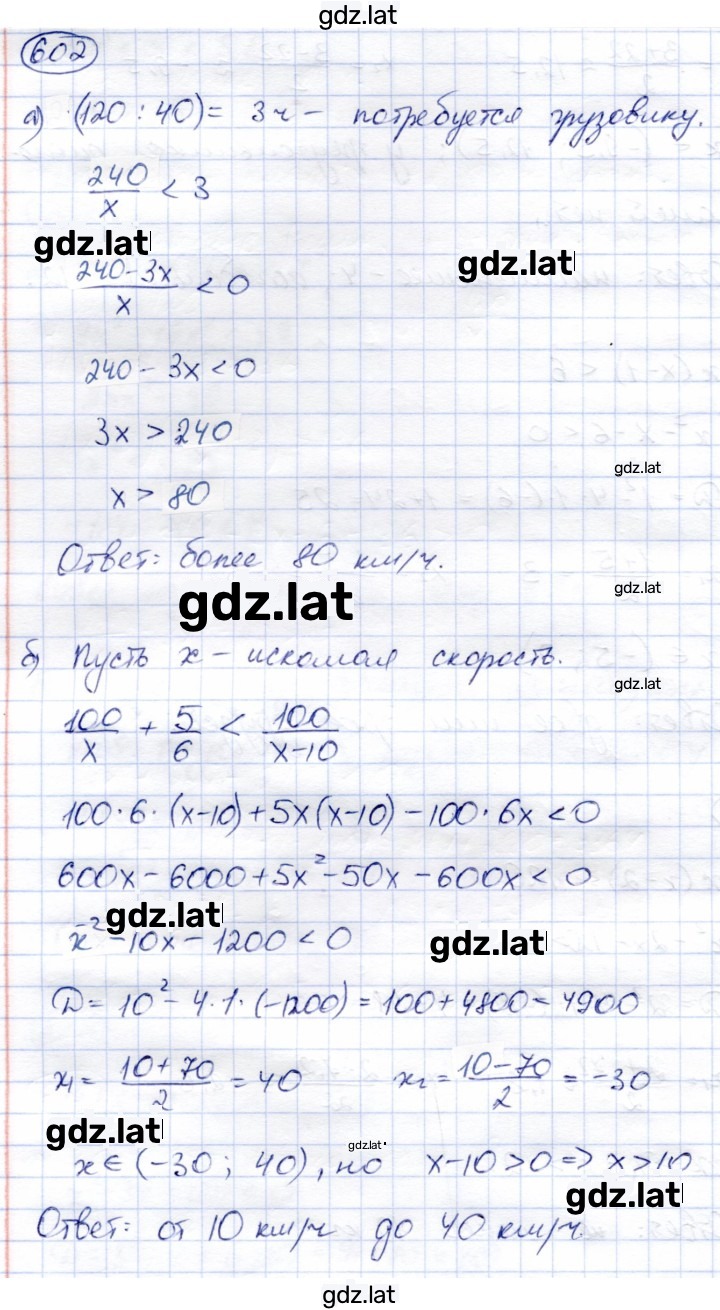 gdz.lat
602
а) (120 : 40) = 3 ч – потребуется грузовику.
240/x < 3
gdz.lat
gdz.lat
240-3x/x < 0
240 - 3x < 0
3x > 240
gdz.lat
x > 80
Ответ: более 80 км/ч.
gdz.lat
gdz.lat
б) Пусть x – искомая скорость.
gdz.lat
100/x + 5/6 < 100/x-10
100·6·(x-10)+5x(x-10)-100·6x<0
600x-6000+5x²-50x-600x<0
gdz.lat
x²-10x-1200<0
gdz.lat
D=10²-4·1·(-1200)=100+4800=4900
x₁=10+70/2=40 x₂=10-70/2=-30
gdz.lat
gdz.lat
x∈(-30; 40), но x-10>0=>x>10
gdz.lat
Ответ: от 10 км/ч до 40 км/ч.
gdz.lat